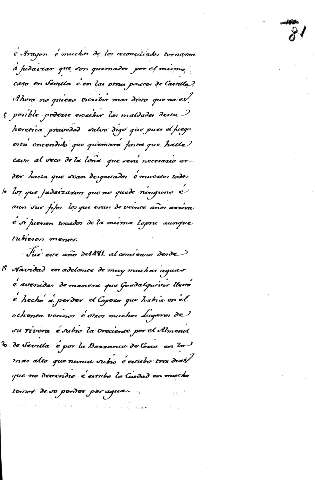 81
é Aragon é muchos de los reconciliados tornaron
á judaizar que son quemados por el mismo
caso en Sevilla é en las otras partes de Castilla
Ahora no quiero escribir mas desto que no es
5 posible poderse escribir las maldades desta
heretica pravedad salvo digo que pues el fuego
está encendido que quemará fasta que halle
cavo al seco de la leña que será necesario ar-
der hasta que sean desgastados é muertos todos
10 los que judaizaron que no quede ninguno é
aun sus fijos los que eran de veinte años arriba
é si fueran tocados de la misma lepra aunque
tubiesen menos.
Fué este año de 1481. al comienzo desde
15 Navidad en adelante de muy muchas aguas
é avenidas de manera que Guadalquivir llevó
é hechó á perder el Copero que había en él
ochenta vecinos é otros muchos lugares de
su rivera é subió la creciente por el Almenil
20 de Sevilla é por la Barranca de Coria en lo
mas alto que nunca subió é estubo tres dias
que no descendió é estubo la Ciudad en mucho
temor de se perder por agua.